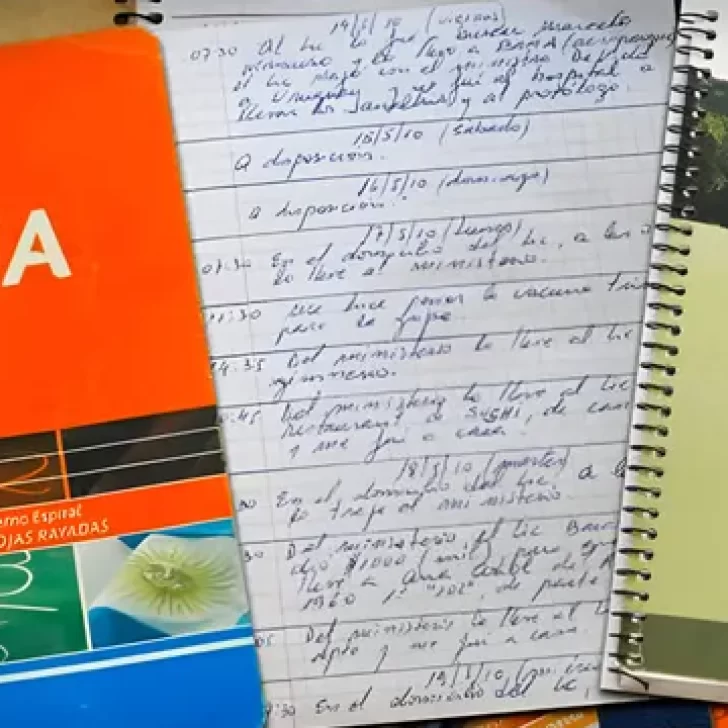 A
OJAS RAYADAS
14/5/10 (viernes)
07:30 Al Lic lo fui a buscar
y lo llevo a (aeroparque)
el Lic viajó con el ministro De Vido
a Uruguay y me fui al hospital a
llevar los y al protólogo.
15/5/10 (sabado)
A disposición.
16/5/10 (domingo)
A disposición.
17/5/10 (lunes)
07:30 En el domicilio del Lic, a las
lo lleve al ministerio.
11:30 me hice poner la vacuna
para la gripe
14:35 Del ministerio lo lleve al Lic
gimnasio.
:45 Del ministerio lo lleve al Lic
restaurant de SUSHI, de
y me fui a casa.
18/5/10 (martes)
30 En el domicilio del Lic, a l
lo traje al ministerio.
30 Del ministerio el Lic
dio $1000 (mil) para que
lleve a
1960 1° "102", de parte
05 Del ministerio lo lleve al
dpto y me fui a casa.
19/5/10
7:30 En el domicilio del Lic,